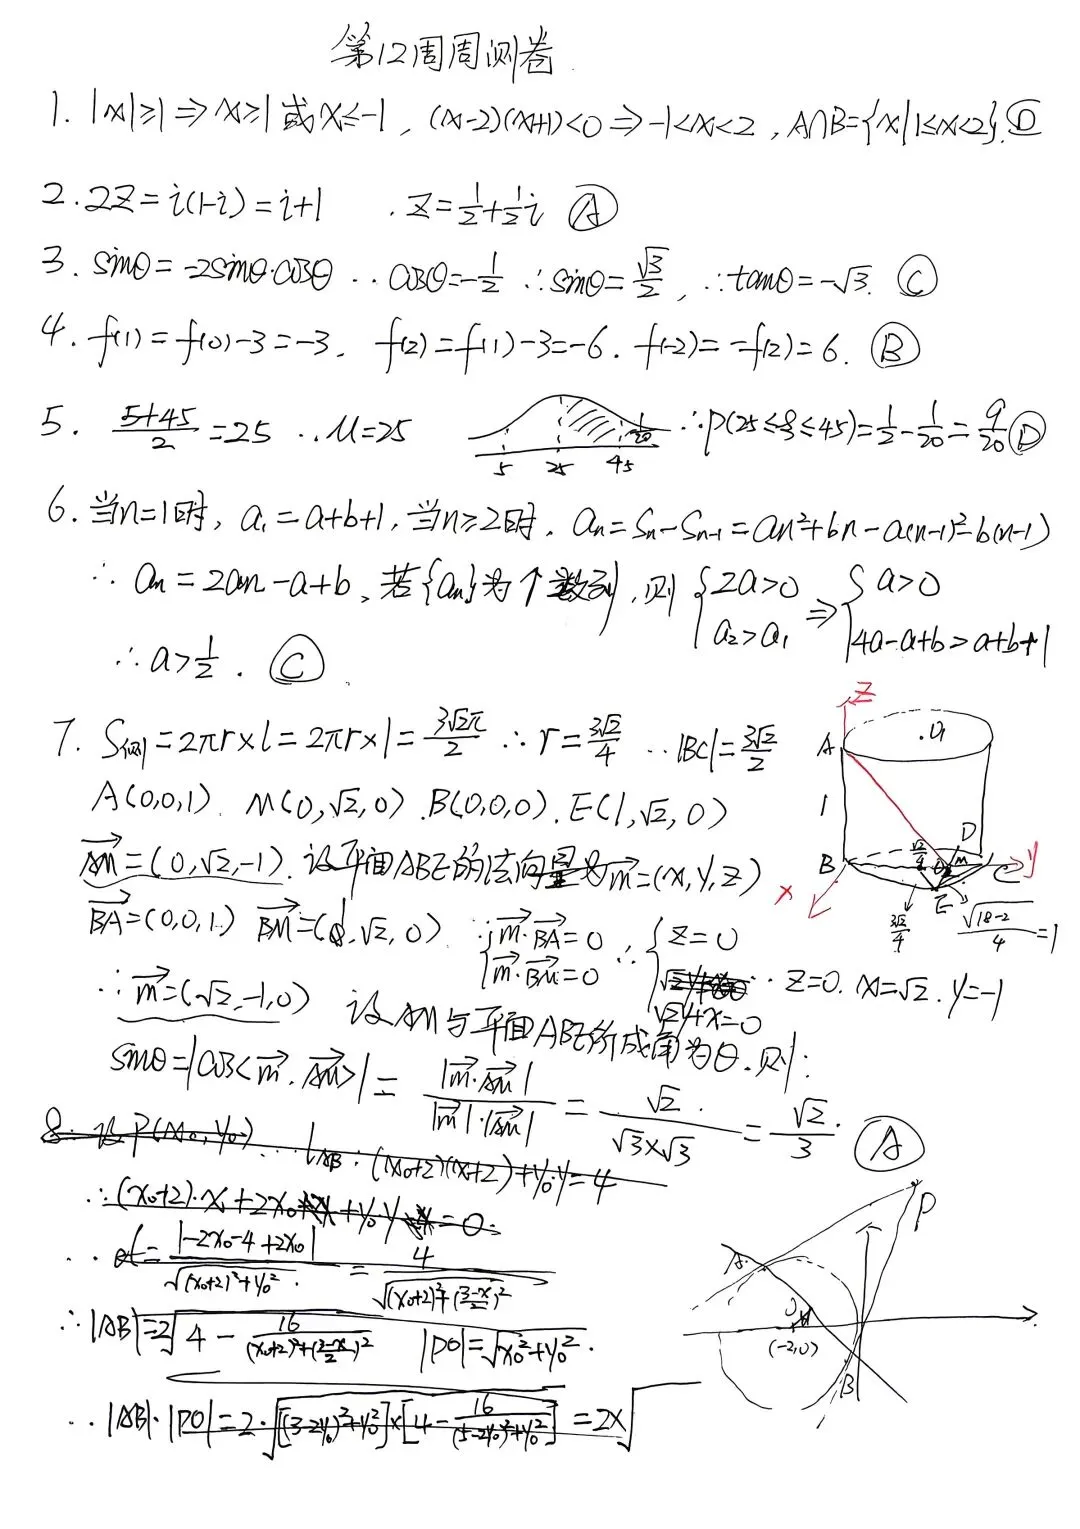 第12周周测卷
1. |x|≥1 ⇒ x≥1 或 x≤-1, (x-2)(x+1)<0 ⇒ -1<x<2, A∩B={x|1≤x<2}. D
2. 2Z=i(1-i)=i+1 ∴ Z=1/2+1/2i A
3. sinθ=-2sinθ·cosθ ∴ cosθ=-1/2 ∴ sinθ=√3/2, ∴ tanθ=-√3. C
4. f(1)=f(0)-3=-3. f(2)=f(1)-3=-6. f(-2)=-f(2)=6. B
5. (5+45)/2=25 ∴ μ=25 5 25 45 1/20 ∴ P(25≤ξ≤45)=1/2-1/20=9/20 D
6. 当n=1时, a₁=a+b+1, 当n≥2时, aₙ=Sₙ-Sₙ₋₁=an²+bn-a(n-1)²-b(n-1)
∴ aₙ=2an-a+b, 若{aₙ}为↑数列, 则 {2a>0 a₂>a₁ ⇒ {a>0 4a-a+b>a+b+1
∴ a>1/2. C
7. S侧=2πr×l=2πr×1=3√2π/2 ∴ r=3√2/4 ∴ |BC|=3√2/2
A(0,0,1). M(0,√2,0). B(0,0,0). E(1,√2,0)
AM=(0,√2,-1). 设平面ABE的法向量为m=(x,y,z)
BA=(0,0,1) BM=(0,√2,0) ∵ {m·BA=0 m·BM=0 ∴ {z=0 √2y+x=0 ∴ z=0. x=√2. y=-1
∴ m=(√2,-1,0) 设AM与平面ABE所成角为θ, 则:
sinθ=|cos<m.AM>|=|m·AM|/|m|·|AM|=√2/(√3×√3)=√2/3. A
Z A O₁ 1 B D M C y x E √2/4 3√2/4 √(18-2)/4=1
8. 设P(x₀,y₀) ∴ l_AB: (x₀+2)(x+2)+y₀·y=4
∴ (x₀+2)·x+2x₀+y₀y=0.
∴ d=|-2x₀-4+2x₀|/√((x₀+2)²+y₀²)=4/√((x₀+2)²+(3-x/2)²)
∴ |AB|=2√(4-16/((x₀+2)²+(3-x/2)²)) |PO|=√(x₀²+y₀²).
∴ |AB|·|PO|=2·√([(3-2y₀)²+y₀²]×[4-16/((5-2y₀)²+y₀²)])=2×√
P A (-2,0) B